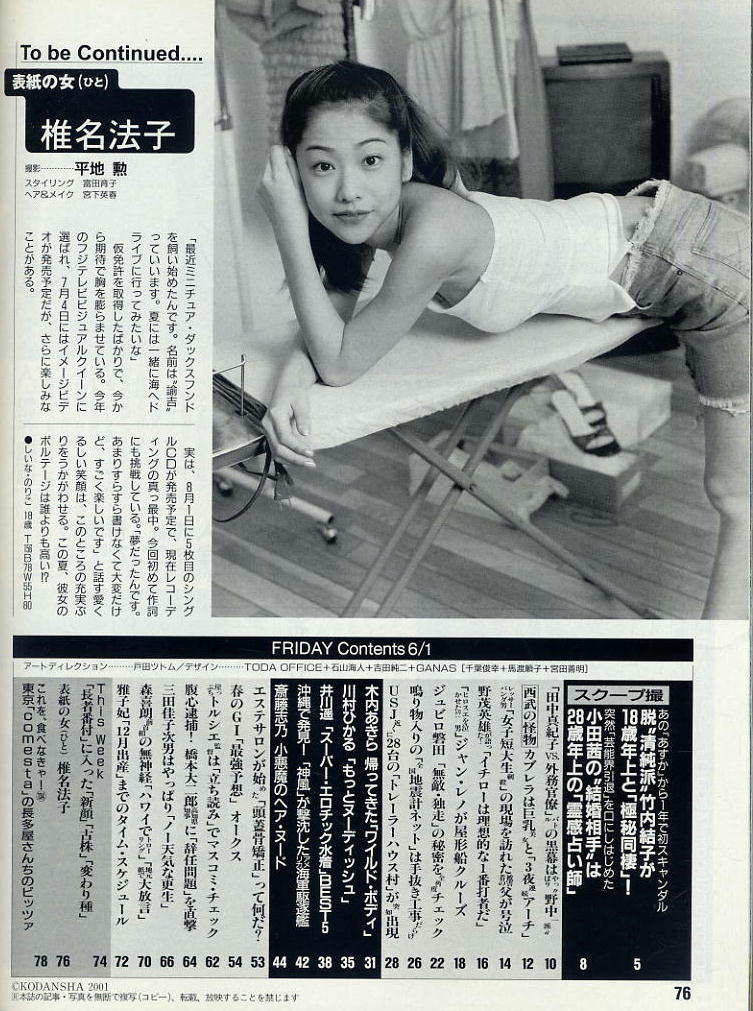 To be Continued....
表紙の女(ひと)
椎名法子
撮影…………平地 勲
スタイリング 富田育子
ヘア&メイク 宮下英春
「最近ミニチュア・ダックスフンド
を飼い始めたんです。名前は“諭吉”
っていいます。夏には一緒に海へド
ライブに行ってみたいな」
仮免許を取得したばかりで、今か
ら期待で胸を膨らませている。今年
のフジテレビビジュアルクイーンに
選ばれ、7月4日にはイメージビデ
オが発売予定だが、さらに楽しみな
ことがある。
実は、8月1日に5枚目のシング
ルCDが発売予定で、現在レコーデ
ィングの真っ最中。今回初めて作詞
にも挑戦している。「夢だったんです。
あまりすらすら書けなくて大変だけ
ど、すごく楽しいです」と話す愛く
るしい笑顔は、このところの充実ぶ
りをうかがわせる。この夏、彼女の
ボルテージは誰よりも高い!?
●しいな・のりこ 18歳 T156B78W55H80
FRIDAY Contents 6/1
アートディレクション………戸田ツトム/デザイン………TODA OFFICE+石山海人+吉田純二+GANAS[千葉俊幸+馬渡順子+宮田善明]
スクープ撮
あの『あすか』から1年で初スキャンダル
脱“清純派”竹内結子が
18歳年上と「極秘同棲」! 5
突然、“芸能界引退”を口にしはじめた
小田茜の“結婚相手”は
28歳年上の「霊感占い師」 8
「田中真紀子VS.外務官僚」バトルの黒幕はやっぱり「野中一派」 10
“西武の怪物”カブレラは巨乳美女と「3夜連続アーチ」 12
「女子短大生刺殺」の現場を訪れた遺族の父が号泣 14
野茂英雄が「イチローは理想的な1番打者だ」 16
ジャン・レノが屋形船クルーズ 18
ジュビロ磐田「無敵・独走」の秘密をチェック 22
鳴り物入りの「全国地震計ネット」は手抜き工事だらけ 26
USJ近くに28台の「トレーラーハウス村」が突如出現 28
木内あきら 帰ってきた「ワイルド・ボディ」 31
川村ひかる「もっとヌーディッシュ」 35
井川遥「スーパーエロチック水着」BEST5 38
沖縄で発見!「神風」が撃沈した米海軍駆逐艦 42
斎藤志乃 小悪魔のヘア・ヌード 44
エステサロンが始めた「頭蓋骨矯正」って何だ? 53
春のGI「最強予想」オークス 54
トルシエ監督は「立ち読み」でマスコミ・チェック 62
腹心逮捕!橋本大二郎知事に「辞任問題」を直撃 64
三田佳子次男はやっぱり「ノー天気な更生」 66
森喜朗前首相の無神経、ハワイで「大放言」 70
雅子妃「12月出産」までのタイム・スケジュール 72
This Week
「長者番付」に入った「新顔」「古株」「変わり種」 74
表紙の女(ひと) 椎名法子 76
これを、食べなきゃー
東京『comesta』の長多屋さんちのピッツァ 78
©KODANSHA 2001
本誌の記事・写真を無断で複写(コピー)、転載、放映することを禁じます
76